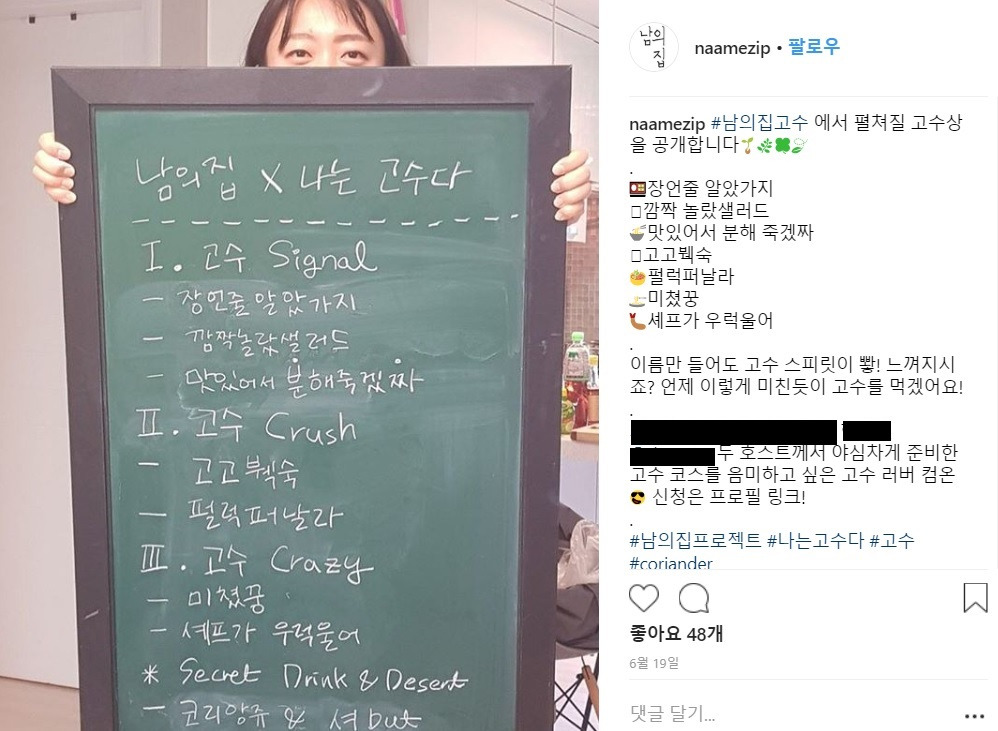 남의집 X 나는 고수다
I. 고수 Signal
- 장언줄알았가지
- 깜짝놀랐샐러드
- 맛있어서 분해죽겠짜
II. 고수 Crush
- 고고붹숙
- 펄럭퍼날라
III. 고수 Crazy
- 미쳤꿍
- 셰프가 우럭울어
* Secret Drink & Desert
- 코리앙쥬 & 셔but
남의
집
naamezip • 팔로우
naamezip #남의집고수 에서 펼쳐질 고수상
을 공개합니다🌱🌿🍀🍃
.
🍱장언줄 알았가지
□깜짝 놀랐샐러드
🍜맛있어서 분해 죽겠짜
□고고붹숙
🥗펄럭퍼날라
🍛미쳤꿍
🍤셰프가 우럭울어
.
이름만 들어도 고수 스피릿이 뽷! 느껴지시
죠? 언제 이렇게 미친듯이 고수를 먹겠어요!
.
두 호스트께서 야심차게 준비한
고수 코스를 음미하고 싶은 고수 러버 컴온
😎 신청은 프로필 링크!
.
#남의집프로젝트 #나는고수다 #고수
#coriander
좋아요 48개
6월 19일
댓글 달기...